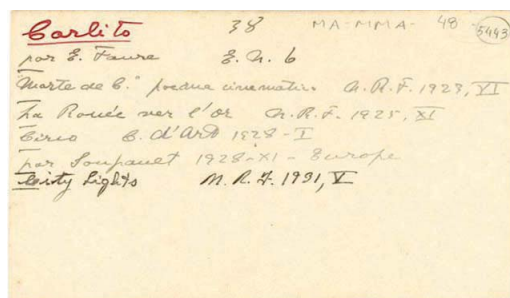 Carlito 38 MA-MMA-48-5443
por E. Faure E. N. 6
"Morte de C." poême cinematic. N.R.F. 1923, VI
La Rouée ver l'or N.R.F. 1925, XI
Circo C. d'Art 1928-I
por Soupault 1928-XI - Europe
City Lights N.R.F. 1931, V